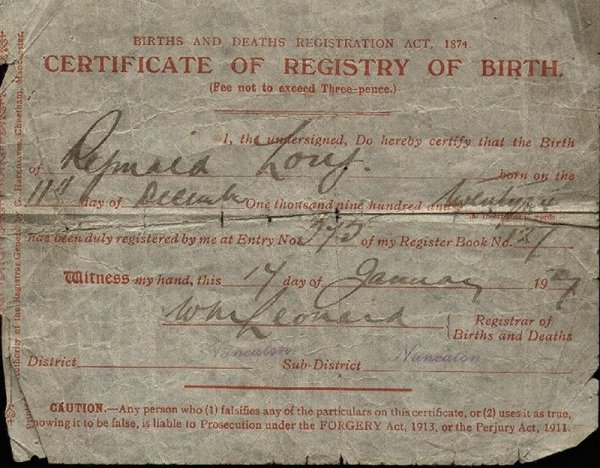 BIRTHS AND DEATHS REGISTRATION ACT, 1874.
CERTIFICATE OF REGISTRY OF BIRTH.
(Fee not to exceed Three-pence.)
I, the undersigned, Do hereby certify that the Birth
of Reginald Long. born on the
11th day of December One thousand nine hundred and twenty
has been duly registered by me at Entry No. 373 of my Register Book No. 127
Witness my hand, this 14 day of January 19
Wm Leonard Registrar of
Births and Deaths
District Nuneaton Sub-District Nuneaton
CAUTION.—Any person who (1) falsifies any of the particulars on this certificate, or (2) uses it as true,
knowing it to be false, is liable to Prosecution under the FORGERY Act, 1913, or the Perjury Act, 1911.
Authority of the Registrar General. G. Hargreaves, Cheetham, Manchester.